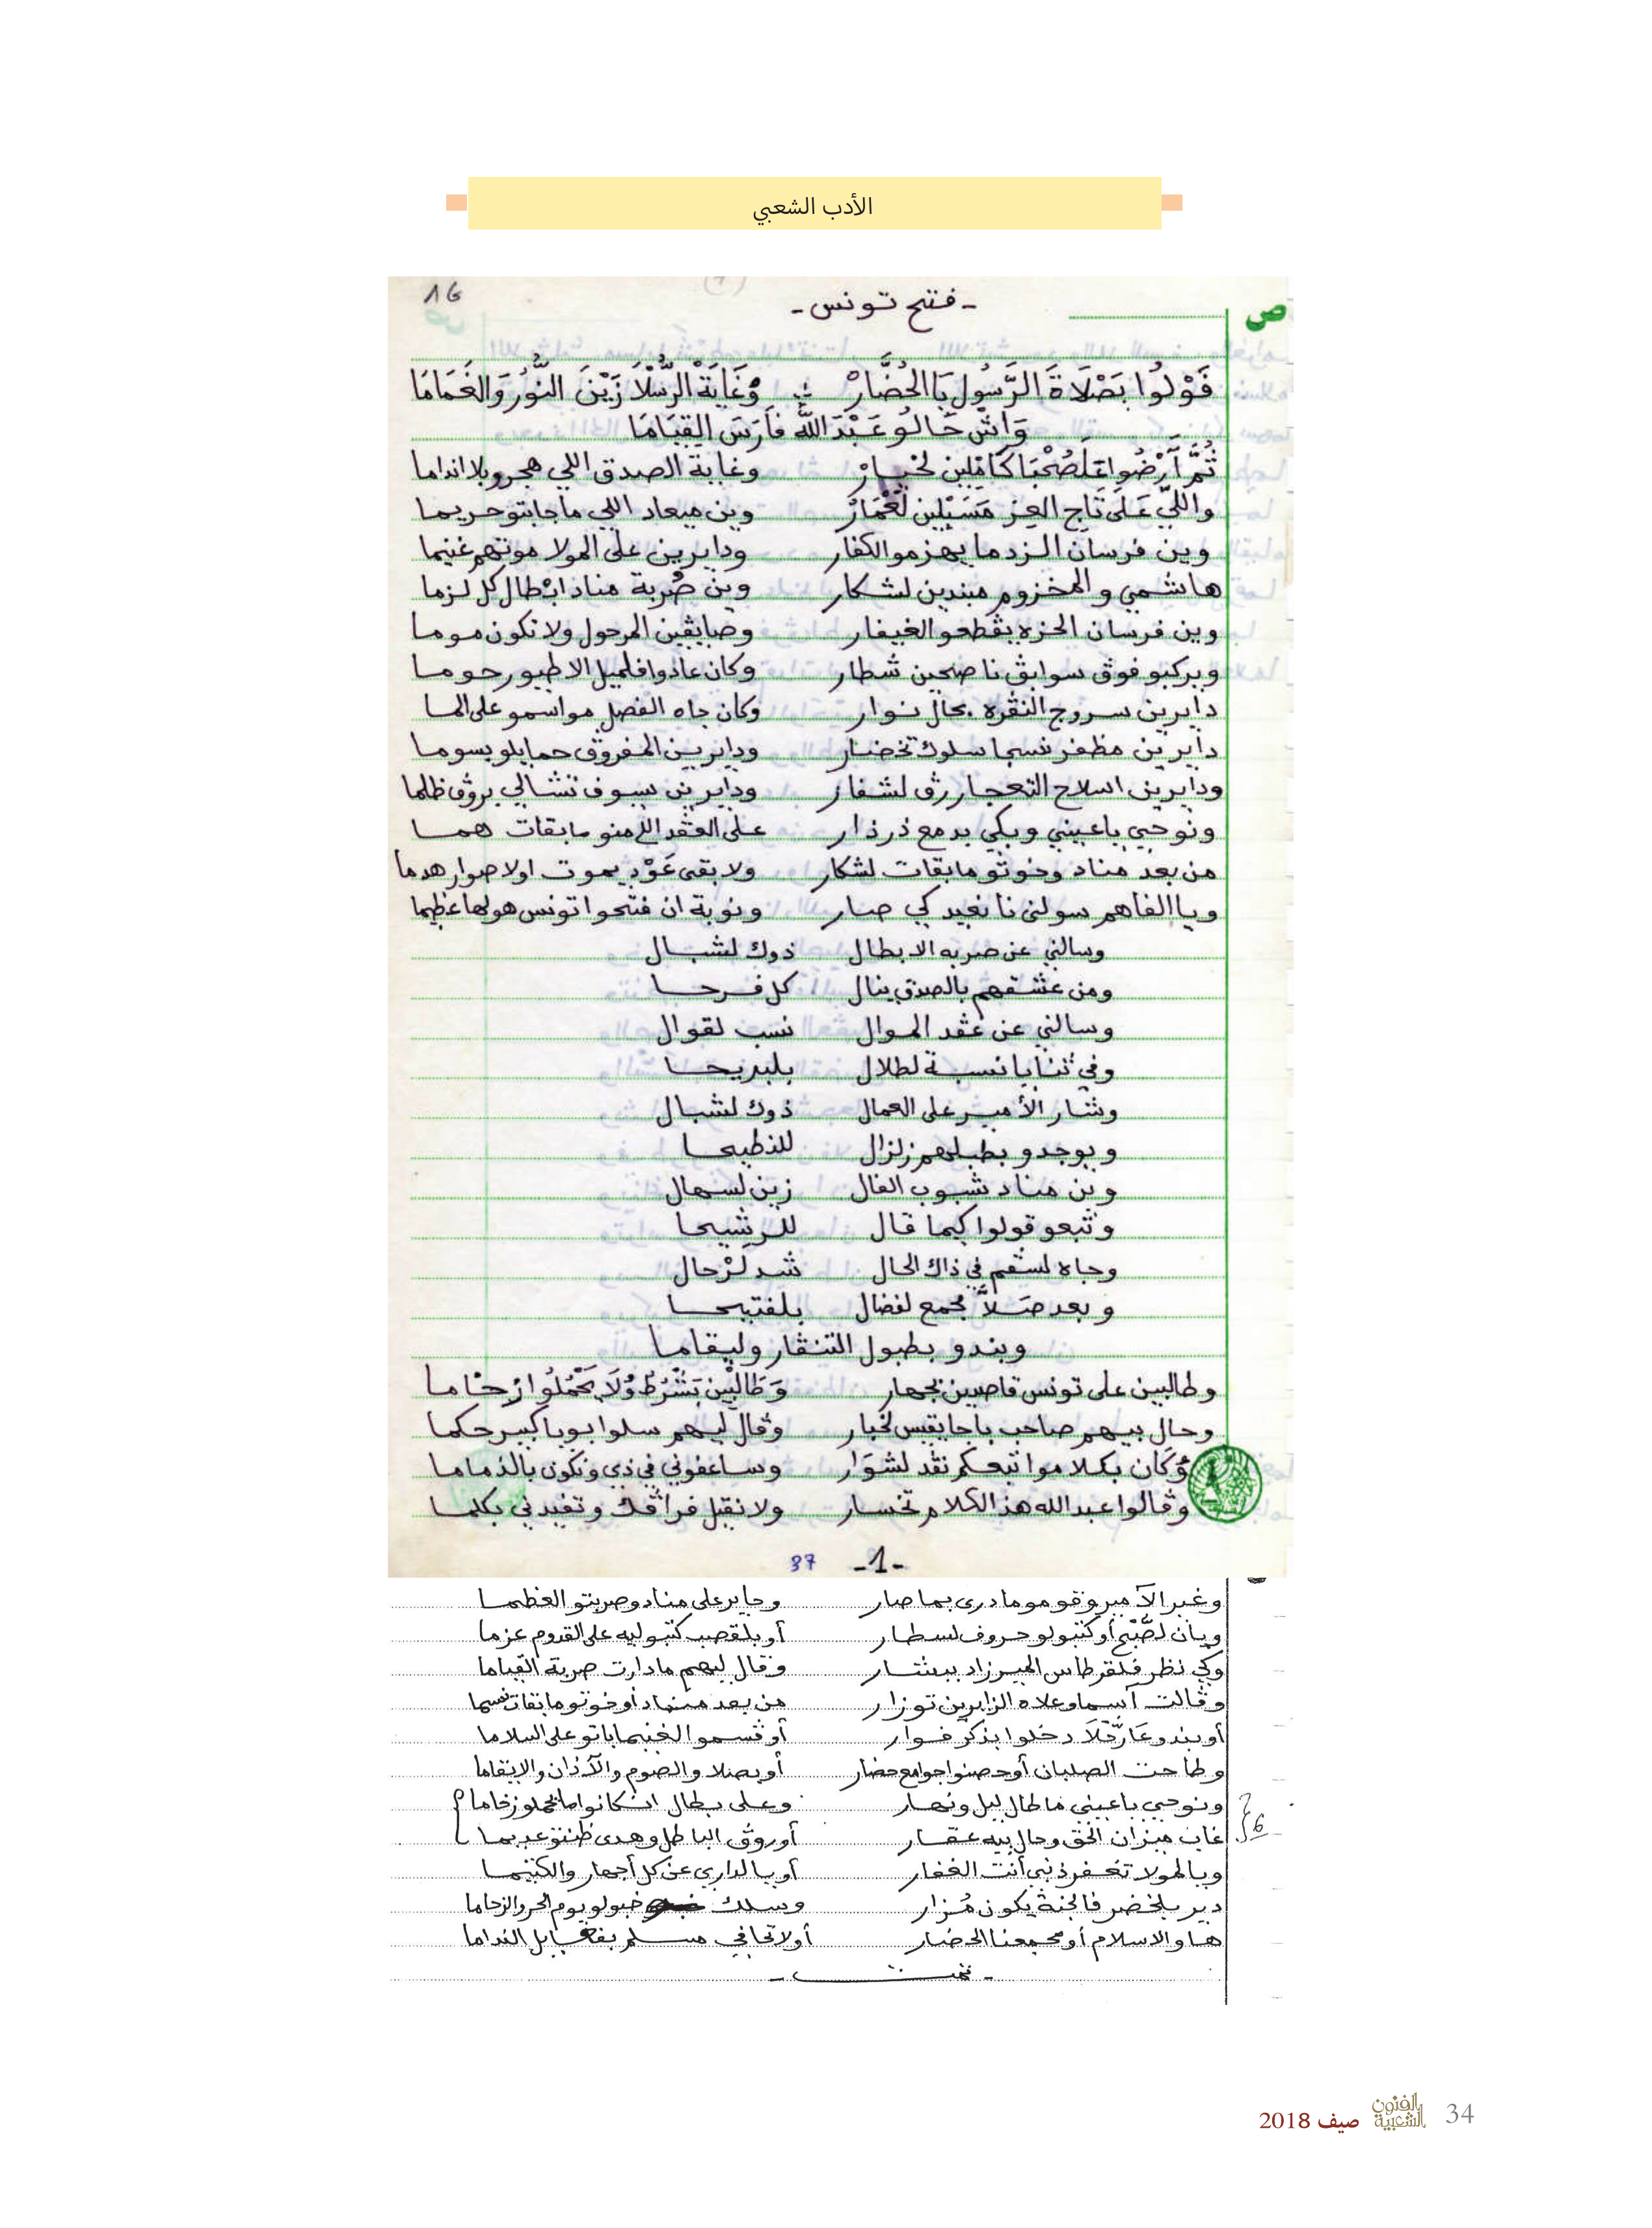 الأدب الشعبي
16
- فتح تونس -
ص
قَوْلُوا بَصْلَاةَ الرَّسُول يَا الحُضَّارْ وْغَايَةْ الرُّسْلَا زَيْنَ النُّورْ وَالغَمَامَا
وَاشْ حَالُو عَبْدَ اللَّه فَارَسَ القِيَامَا
ثُمَّ آرْضُوا عْلَصُحْبَا كَامْلين لخيارْ وغاية الصدق اللي هجرو بلا انداما
واللِّي عَلَى تَاج العز مَسَبْلِين لَعْمَارْ وين ميعاد اللي ماجابتو حريما
وين فرسان الزد ما يهزمو الكفار ودايرين على المولا موتهم غنيما
هاشمي والمخزوم مبندين لشكار وين ضُربة مناد ابْطال كل لزما
وين فرسان الحزه يڤطعو الغيفار وصايڤين المرحول ولا تكون موما
ويركبو فوڤ سوابڤ ناصحين شطار وكان عادوا فلميل الا طيور حوما
دايرين سروج النڤره بحال نوار وكان جاه الفصل مواسمو على الما
دايرين مظفر نسجا سلوك تخضار ودايرين المفروڤ حمايلو بسوما
ودايرين اسلاح التعجار رڤ لشفار ودايرين سيوف تشالي بروڤ ظلما
ونوحي ياعيني وبكي بدمع ذرذار على العڤد اللي منو مابقات همما
من بعد مناد وخوتو مابقات لشكار ولا بقى عَوْد يموت اولا صوار هدما
ويا الفاهم سولني نا نعيد كي صار ونوبة ان فتحوا تونس هولها عظيما
وسالني عن ضربه الابطال ذوك لشبال
ومن عشقهم بالصدق ينال كل فرحا
وسالني عن عڤد الموال نسب لقوال
وفي ثنايا نسبة لطلال بلبريحا
وشار الأمير على العمال ذوك لشبال
ويوجدو بطبلهم زلزال للنطيحا
وين مناد شبوب الفال زين لسهال
وتبعو قولوا كيما قال للرشيحا
وجاه لسڤم في ذاك الحال شد لرْحال
وبعد صلاَّ مجمع لفضال بلفتيحا
وبندو بطبول التنڤار وليقاما
وطالبين على تونس قاصدين بجهار وَطَالْبِينْ بَشْرْطْ وُلَا يَحْمْلُوا زحاما
وحال بيهم صاحب باجا يقيس لخبار وڤال ليهم سلوا بويا كبير حكما
وُكَان بكلاموا نبعكم نڤد لشوَار وساعفوني في ذي ونكون بالذماما
وڤالوا عبد الله هذ الكلام تخسار ولا نقبل فراڤك وتفيدني بكلما
37 -1-
وغير الآمير وقومو مادرى بما صار وجاير على مناد وضربتو العظما
وبان لصّبْح أو كتبولو حروف لسطار أو بلقصب كتبو ليه على القدوم عزما
وكي نظر فلقرطاس الخير زاد بيشار وڤال ليهم مادارت ضربة القياما
وڤالت آسما وعلاه الزايرين توزار من بعد مناد أو خوتو مابقات نسما
أو بندو عَارَّجْلَا دخلوا بذكر فوار أو ڤسموا الغنيما باتو على السلاما
وطاحت الصلبان أو حصنوا جوامع حضار أو بصلا والصوم والآذان والايقاما
ونوحي ياعيني ماطال ليل ونهار وعلى بطال انكانوا ما يحملو زحاما
غاب ميزان الحق وحال بيه عقار أو روڤ الباطل وهدى ظنتو عديما
ويا المولا تغفر ذنبي أنت الغفار أو يا الداري عن كل أجهار والكتيما
دير بلخضر فالجنة يكون مُزار وسلك خبولو يوم الحر والزحاما
هاو الاسلام أو مجمعنا الحضار أولا تجافي مسلم بفعايل النداما
- تمت -
34 الفنون الشعبية صيف 2018